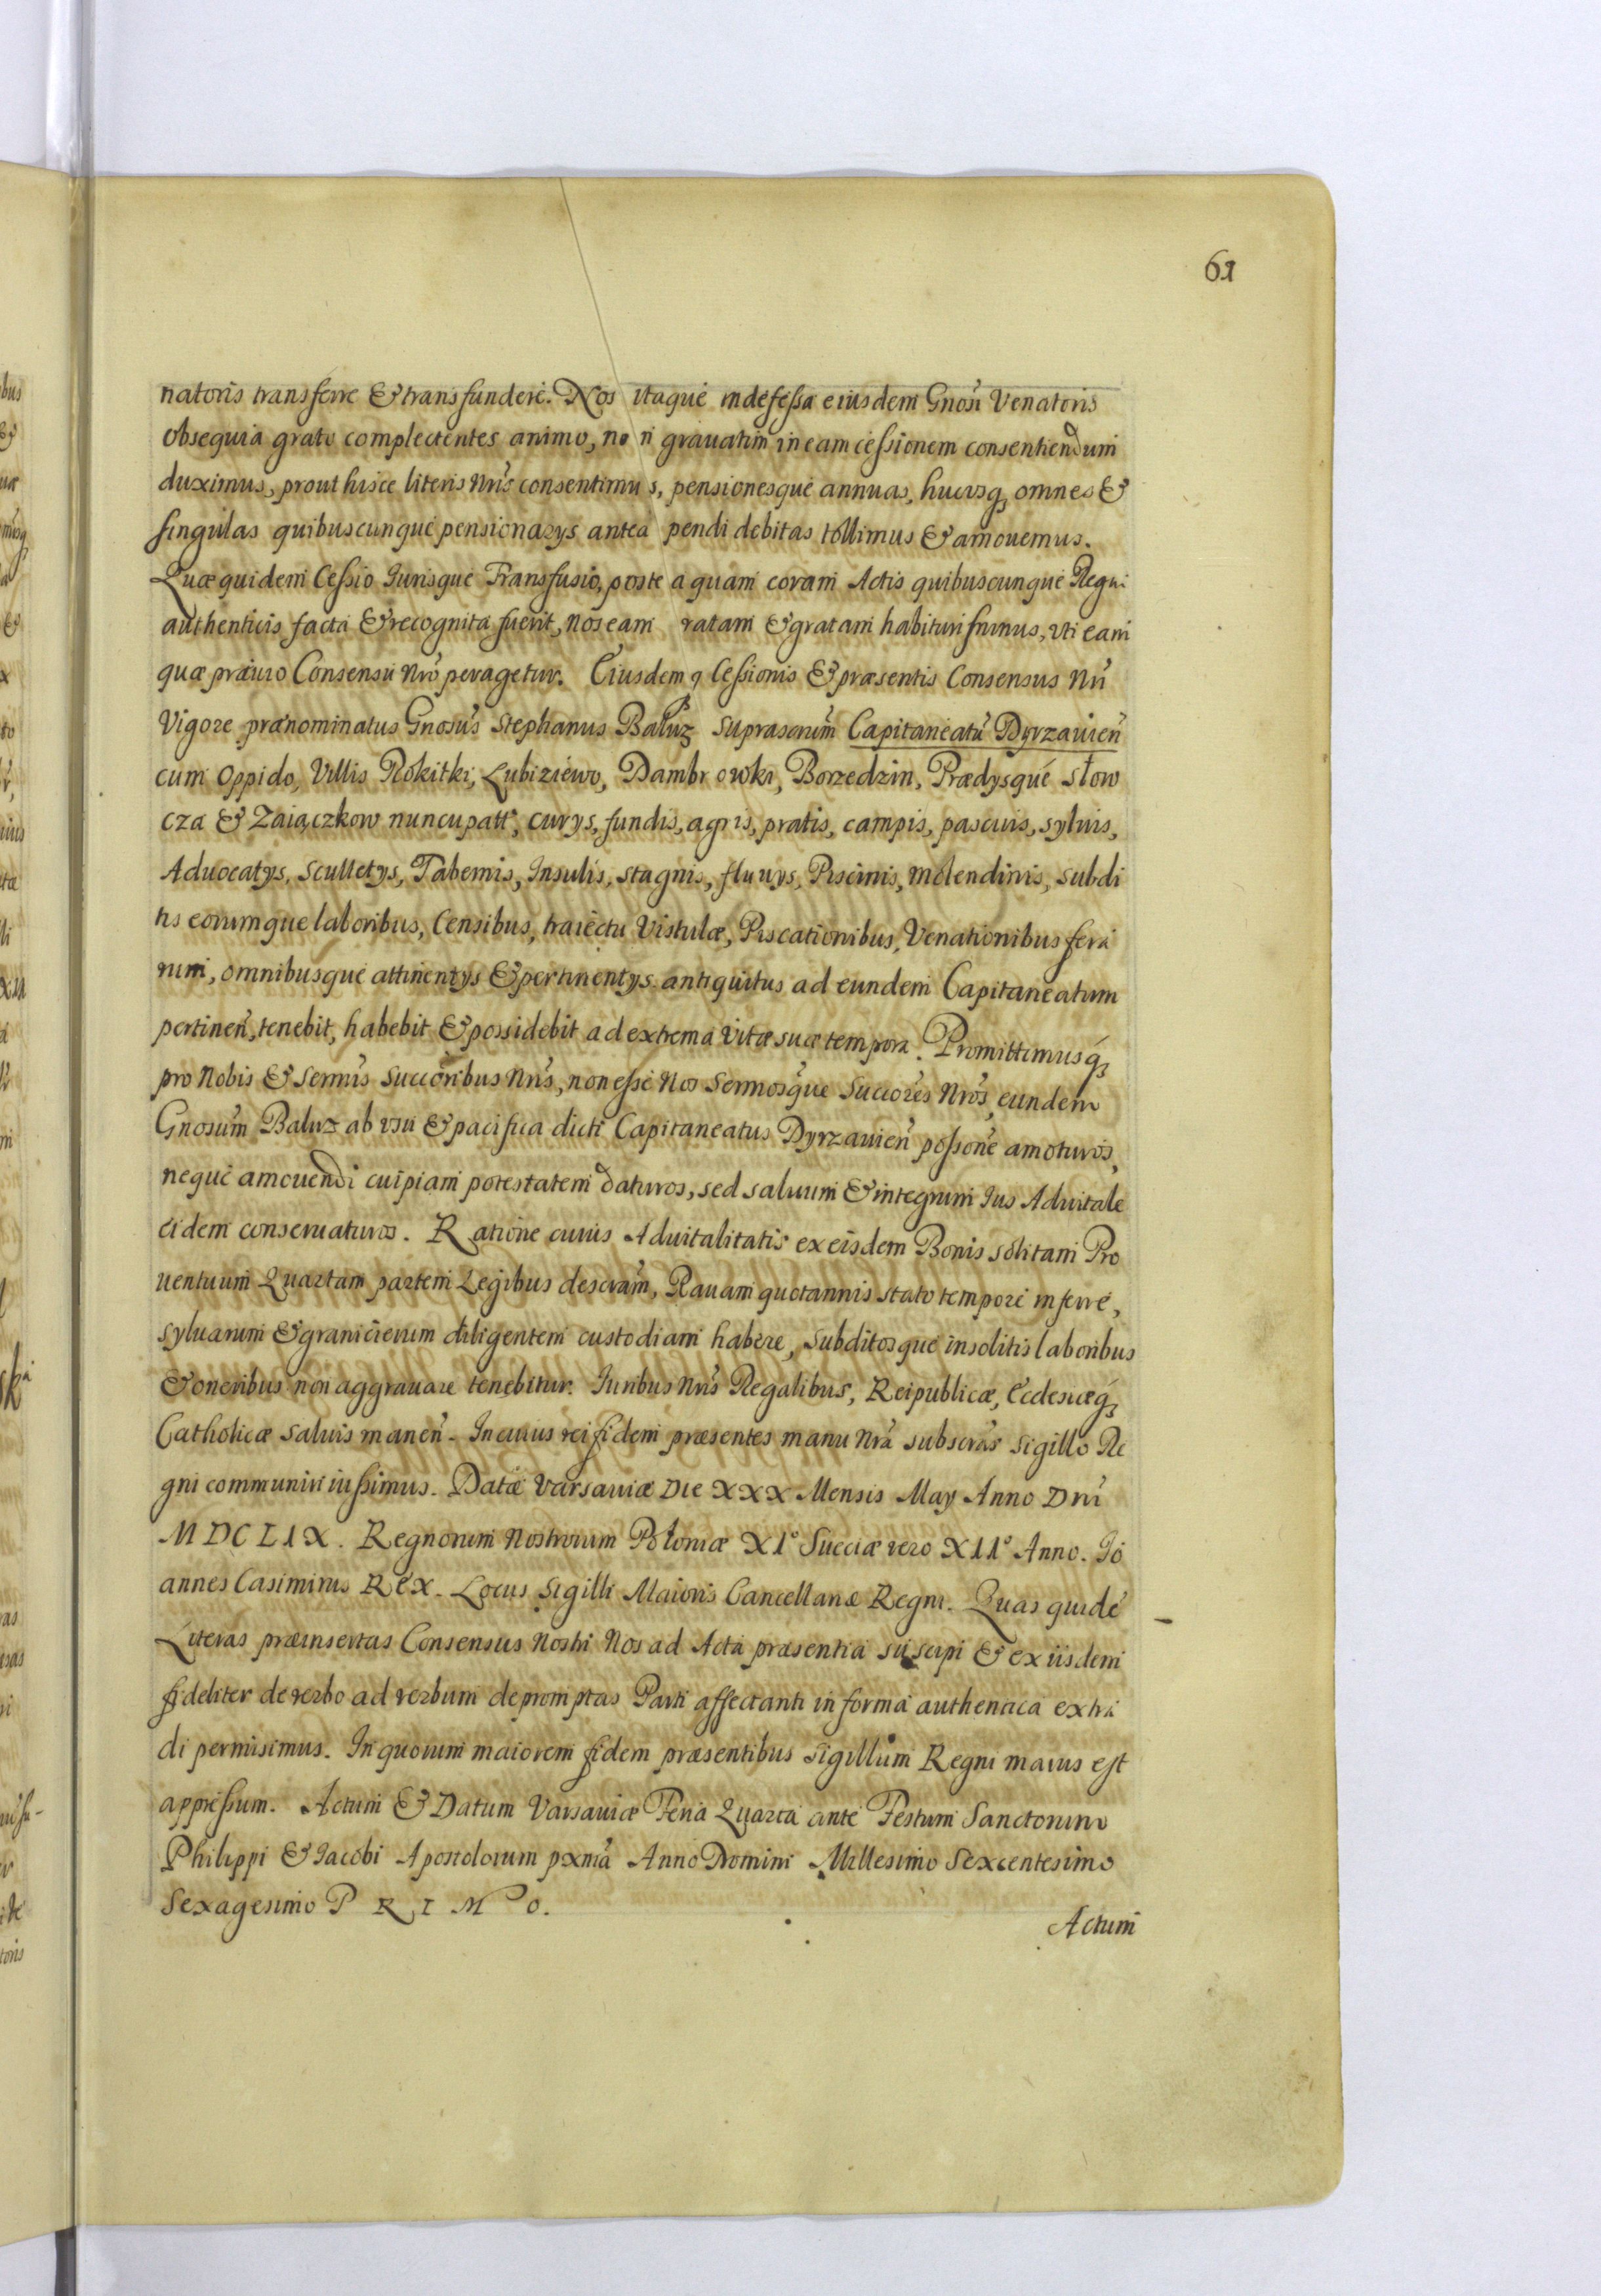 61
natoris transferre & transfundere. Nos itaque indefessa eiusdem Gnosi Venatoris
obsequia grato complectentes animo, non grauatim in eam cessionem consentiendum
duximus, prout hisce literis Nris consentimus, pensionesque annuas, hucusq, omnes &
singulas quibuscunque pensionarys antea pendi debitas tollimus & amouemus.
Quæ quidem Cessio Iurisque Transfusio, posteaquam coram Actis quibuscunque Regni
authenticis facta & recognita fuerit, nos eam ratam & gratam habituri sumus, uti eam
quæ præuio Consensu Nro peragetur. Eiusdemq Cessionis & præsentis Consensus Nri
Vigore prænominatus Gnosus Stephanus Baluz suprascrum Capitaneatu Dyrzauien
cum Oppido, Villis Rokitki, Lubiziewo, Dambrowka, Borzedzin, Prædysque Słow
cza & Zaiączkow nuncupatt, curys, fundis, agris, pratis, campis, pascuis, syluis,
Aduocatys, Scultetys, Tabernis, Insulis, stagnis, fluuys, Piscinis, Molendinis, subdi
tis eorumque laboribus, Censibus, traiectu Vistulæ, Piscationibus, Venationibus fera
rum, omnibusque attinentys & pertinentys antiquitus ad eundem Capitaneatum
pertinen, tenebit, habebit & possidebit ad extrema vitæ suæ tempora. Promittimusq
pro Nobis & Sermis Succoribus Nris, non esse Nos Sermosque Succores Nros, eundem
Gnosum Baluz ab usu & pacifica dicti Capitaneatus Dyrzauien possone amoturos,
neque amouendi cuipiam potestatem daturos, sed saluum & integrum Ius Aduitale
eidem conseruaturos. Ratione cuius Aduitalitatis ex eisdem Bonis solitam Pro
uentuum Quartam partem Legibus descram, Rauam quotannis stato tempore inferre,
syluarum & granicierum diligentem custodiam habere, subditosque insolitis laboribus
& oneribus non aggrauare tenebitur. Iuribus Nris Regalibus, Reipublicæ, Ecclesiæq
Catholicæ saluis manen. In cuius rei fidem præsentes manu Nra subscras Sigillo Re
gni communiri iussimus. Datæ Varsauiæ Die XXX Mensis May Anno Dni
MDCLIX. Regnorum Nostrorum Poloniæ XI° Sueciæ vero XII° Anno. Io
annes Casimirus Rex. Locus Sigilli Maioris Cancellariæ Regni. Quas quidē
Literas præinsertas Consensus Nostri Nos ad Acta præsentia suscipi & ex iisdem
fideliter de verbo ad verbum depromptas Parti affectanti in forma authentica extra
di permisimus. In quorum maiorem fidem præsentibus Sigillum Regni maius est
appressum. Actum & Datum Varsauiæ Feria Quarta ante Festum Sanctorum
Philippi & Iacobi Apostolorum pxma Anno Domini Millesimo Sexcentesimo
Sexagesimo P R I M O.
Actum